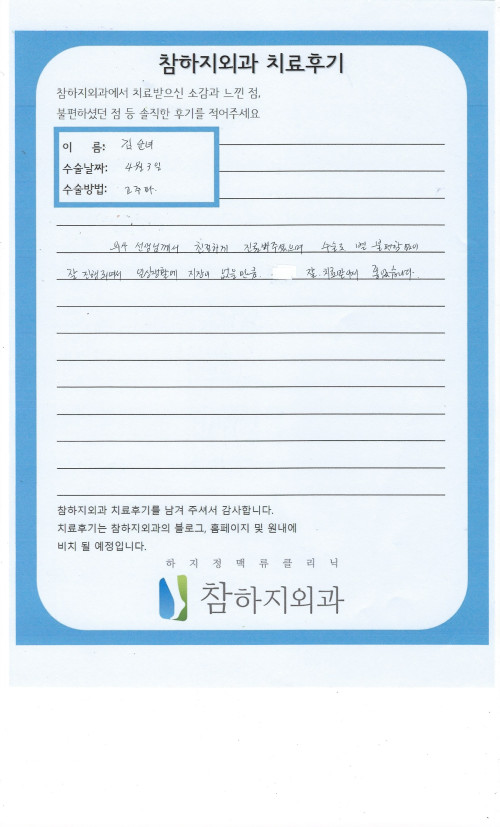 참하지외과 치료후기
참하지외과에서 치료받으신 소감과 느낀 점,
불편하셨던 점 등 솔직한 후기를 적어주세요
이 름: 김순녀
수술날짜: 4월 3일
수술방법: 고주파
선생님께서 친절하게 진료해주셨으며 수술도 별 불편함 없이
잘 진행되어서 일상생활에 지장이 없을만큼 잘 치료받아서 좋았습니다.
참하지외과 치료후기를 남겨 주셔서 감사합니다.
치료후기는 참하지외과의 블로그, 홈페이지 및 원내에
비치 될 예정입니다.
하지정맥류클리닉
참하지외과